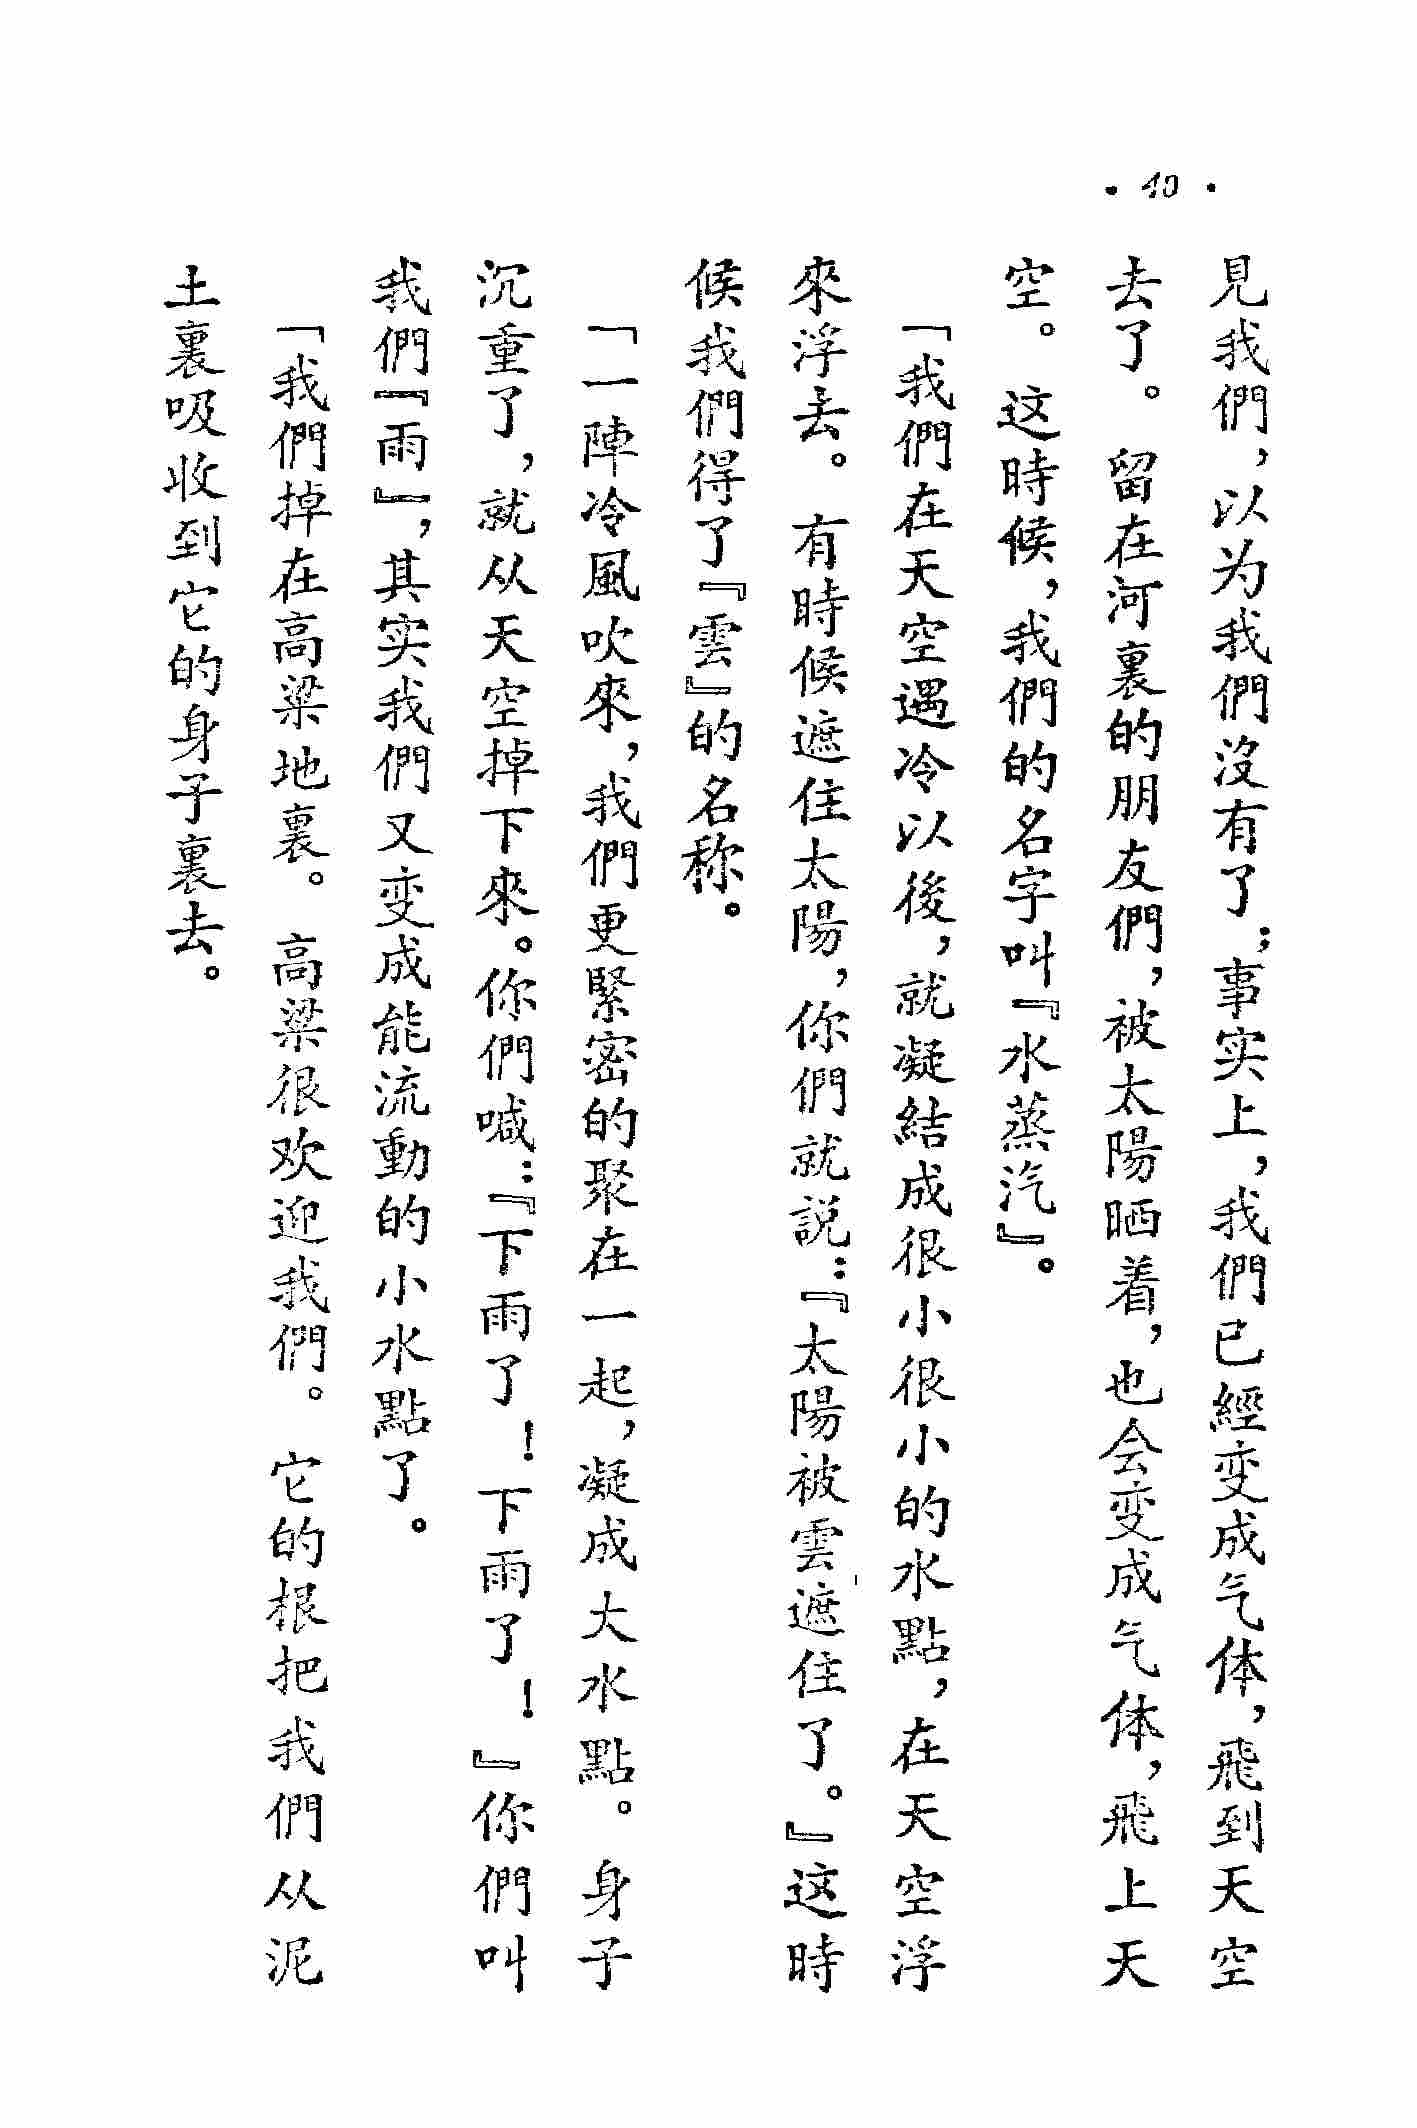 • 40 •
見我們，以为我們沒有了；事实上，我們已經变成气体，飛到天空
去了。留在河裏的朋友們，被太陽晒着，也会变成气体，飛上天
空。这時候，我們的名字叫『水蒸汽』。
「我們在天空遇冷以後，就凝結成很小很小的水點，在天空浮
來浮去。有時候遮住太陽，你們就説：『太陽被雲遮住了。』这時
候我們得了『雲』的名称。
「一陣冷風吹來，我們更緊密的聚在一起，凝成大水點。身子
沉重了，就从天空掉下來。你們喊：『下雨了！下雨了！』你們叫
我們『雨』，其实我們又变成能流動的小水點了。
「我們掉在高粱地裏。高粱很欢迎我們。它的根把我們从泥
土裏吸收到它的身子裏去。